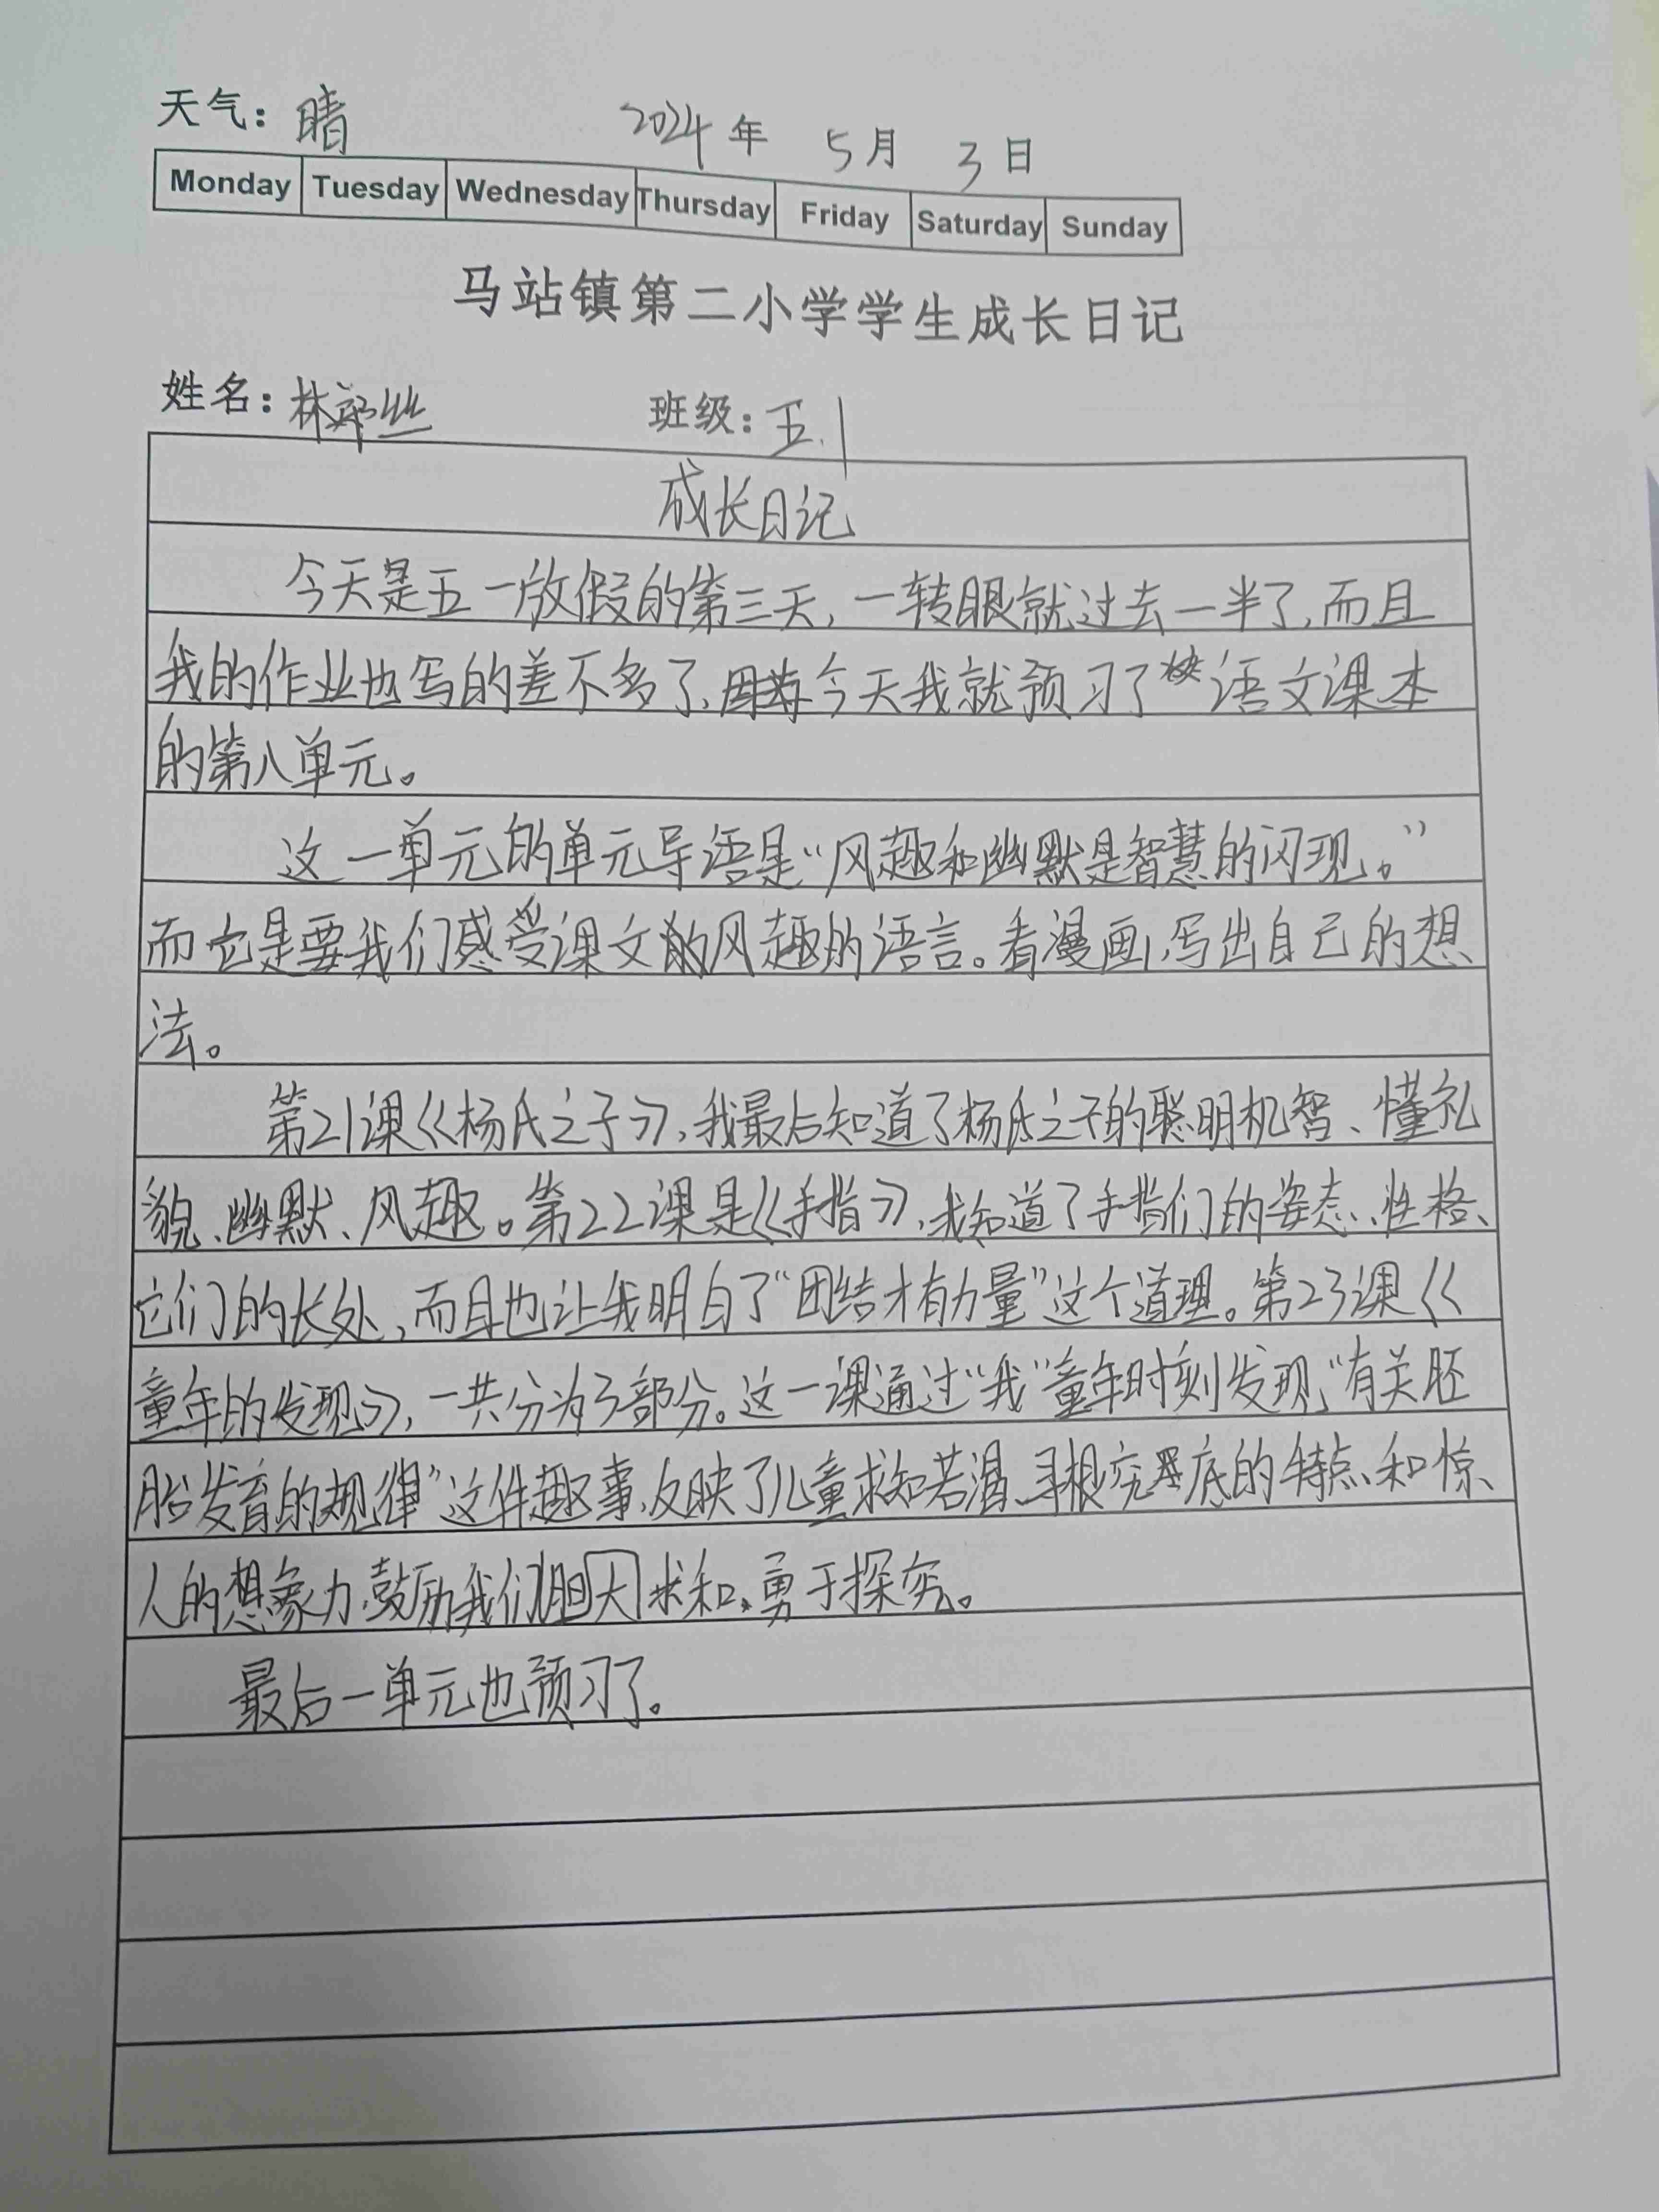 天气：晴 2024年 5月 3日
Monday Tuesday Wednesday Thursday Friday Saturday Sunday
马站镇第二小学学生成长日记
姓名：林 班级：五.1
成长日记
今天是五一放假的第三天，一转眼就过去一半了，而且
我的作业也写的差不多了，今天我就预习了语文课本
的第八单元。
这一单元的单元导语是“风趣和幽默是智慧的闪现。”
而它是要我们感受课文的风趣的语言。看漫画，写出自己的想
法。
第21课《杨氏之子》，我最后知道了杨氏之子的聪明机智、懂礼
貌、幽默、风趣。第22课是《手指》，我知道了手指们的姿态、性格、
它们的长处，而且也让我明白了“团结才有力量”这个道理。第23课《
童年的发现》，一共分为3部分。这一课通过“我”童年时刻发现，“有关胚
胎发育的规律”这件趣事，反映了儿童求知若渴、寻根究底的特点、和惊、
人的想象力，鼓励我们胆大求和、勇于探究。
最后一单元也预习了。